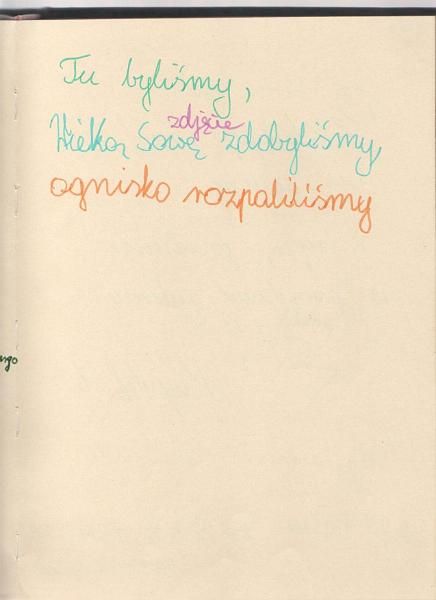 Tu byliśmy,
zdjęcie
Wielką Sowę zdobyliśmy,
ognisko rozpaliliśmy